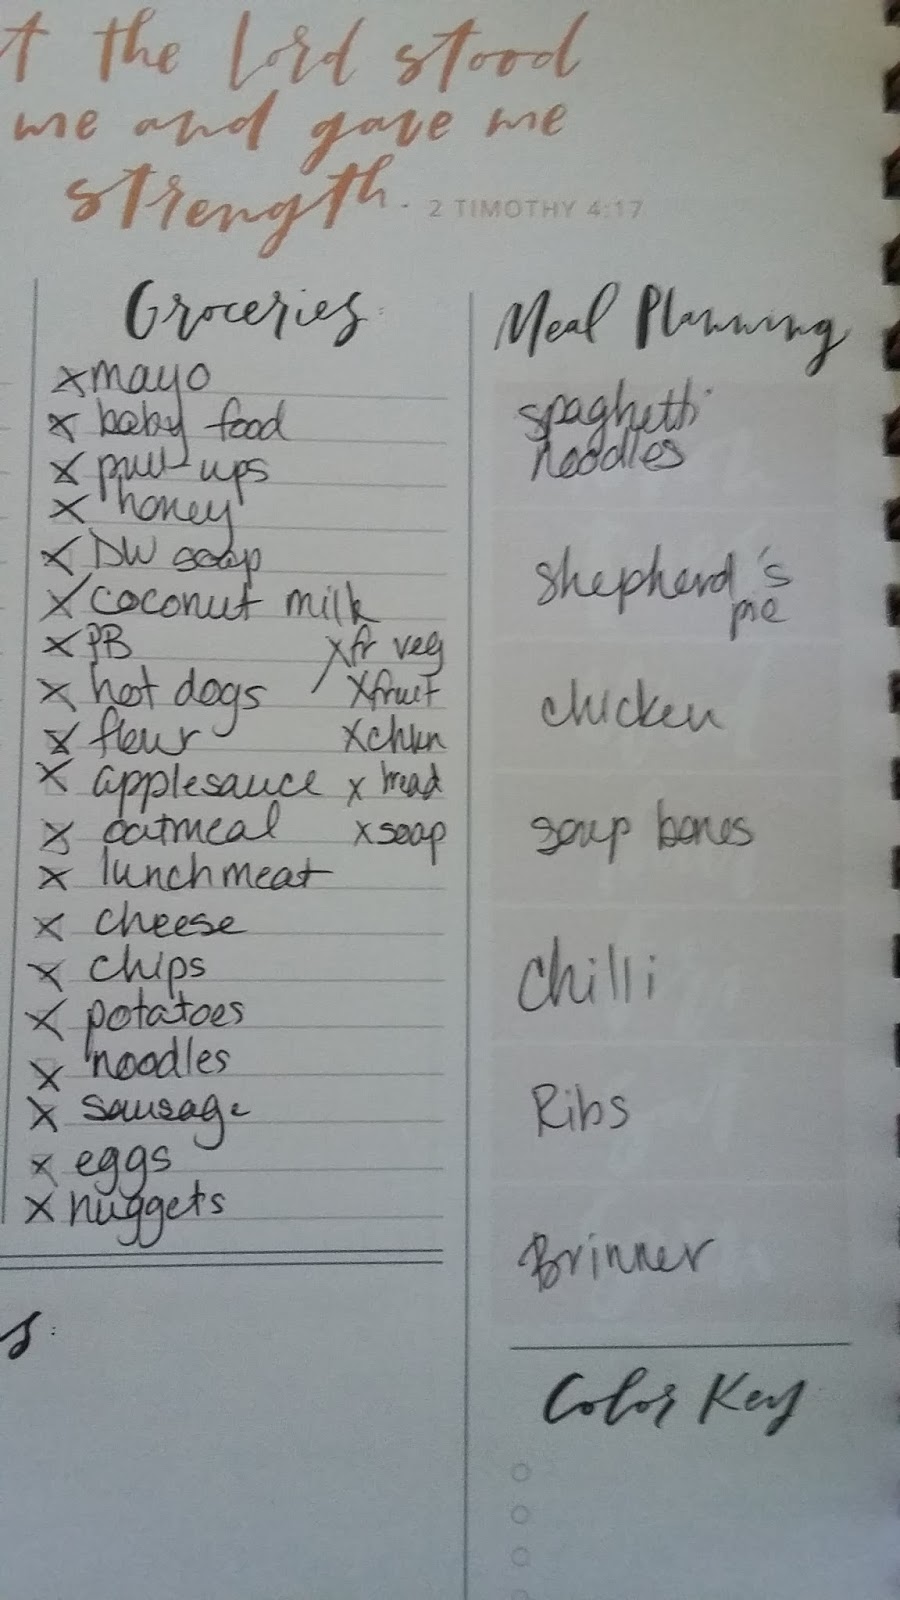 t the Lord stood
me and gave me
strength. 2 TIMOTHY 4:17
Groceries:
x mayo
x baby food
x pull-ups
x honey
x DW soap
x coconut milk
x PB
x hot dogs
x flour
x applesauce
x oatmeal
x lunchmeat
x cheese
x chips
x potatoes
x noodles
x sausage
x eggs
x nuggets
x fr veg
x fruit
x chkn
x bread
x soap
s:
Meal Planning
spaghetti
noodles
shepherd's
pie
chicken
soup bones
Chilli
Ribs
Brinner
Color Key